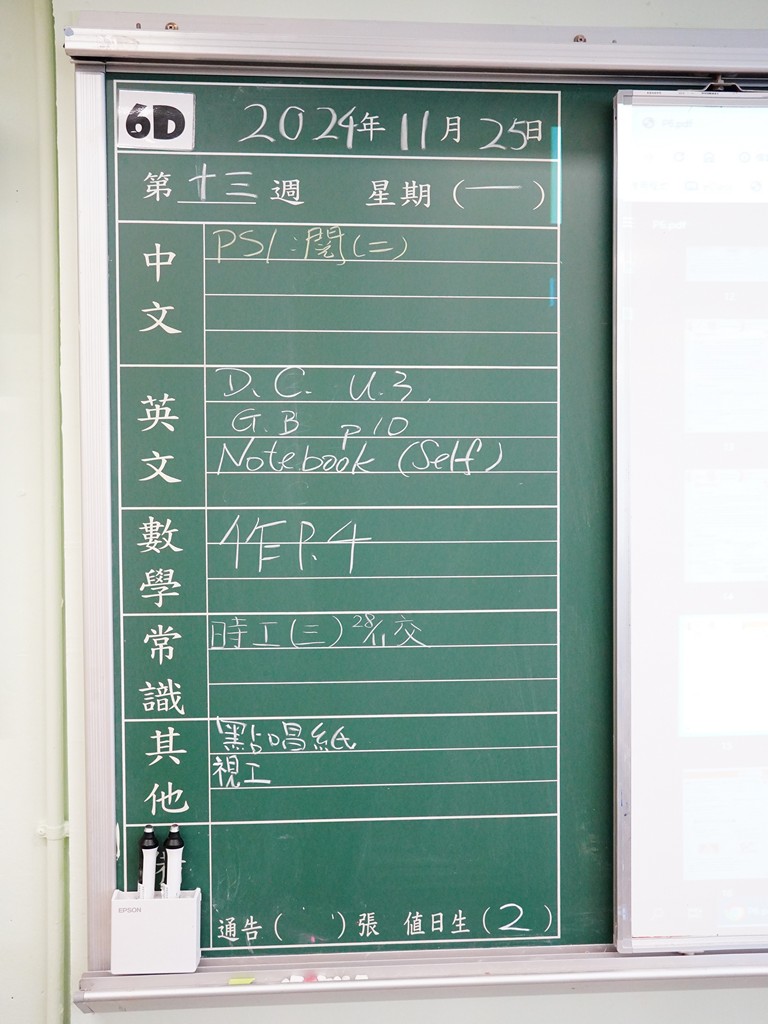 6D 2024年11月25日
第十三週 星期(一)
中文
PS1:閱(二)
英文
D.C. U.3.
G.B p10
Notebook (Self)
數學
作P.4
常識
時工(三) 28/11交
其他
點唱紙
視工
通告( )張 值日生(2)
EPSON